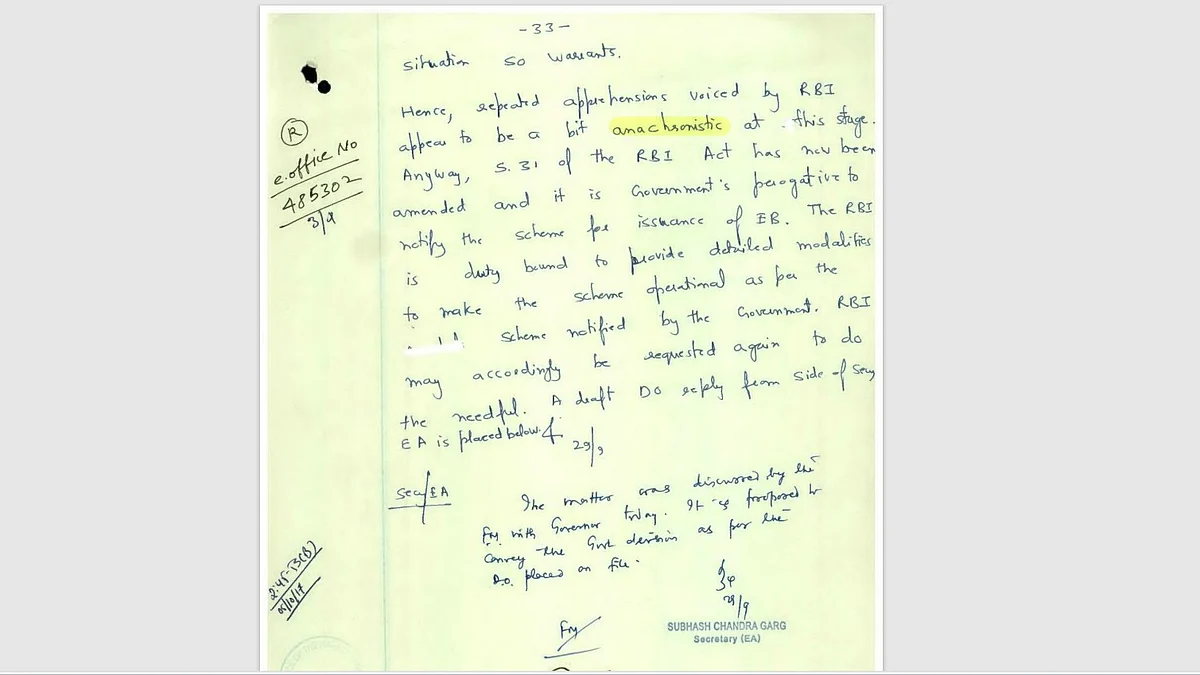 -33-
situation so warrants.
Hence, repeated apprehensions voiced by RBI
appear to be a bit anachronistic at this stage.
Anyway, S.31 of the RBI Act has now been
amended and it is Government's perogative to
notify the scheme for issuance of EB. The RBI
is duty bound to provide detailed modalities
to make the scheme operational as per the
scheme notified by the Government. RBI
may accordingly be requested again to do
the needful. A draft DO reply from side of Secy
EA is placed below.
29/9
R
e.office No
485302
3/9
Secy EA
The matter was discussed by the
FM with Governor today. It is proposed to
convey the Govt decision as per the
D.O. placed on file.
29/9
SUBHASH CHANDRA GARG
Secretary (EA)
FM
05/10/17